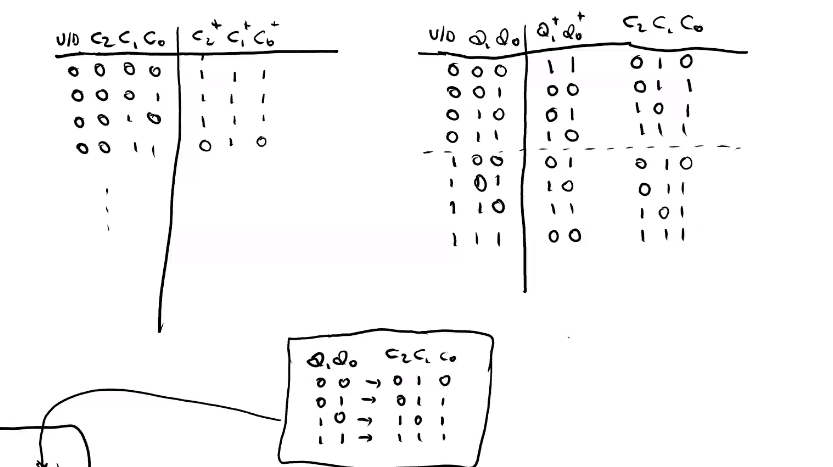 U/D C2 C1 C0 | C2+ C1+ C0+
0 0 0 0 | 1 1 1
0 0 0 1 | 1 1 1
0 0 1 0 | 1 1 1
0 0 1 1 | 0 1 0
U/D Q1 Q0 | Q1+ Q0+ C2 C1 C0
0 0 0 | 1 1 0 1 0
0 0 1 | 0 0 0 1 1
0 1 0 | 0 1 1 0 1
0 1 1 | 1 0 1 1 1
1 0 0 | 0 1 0 1 0
1 0 1 | 1 0 0 1 1
1 1 0 | 1 1 1 0 1
1 1 1 | 0 0 1 1 1
Q1 Q0 C2 C1 C0
0 0 → 0 1 0
0 1 → 0 1 1
1 0 → 1 0 1
1 1 → 1 1 1